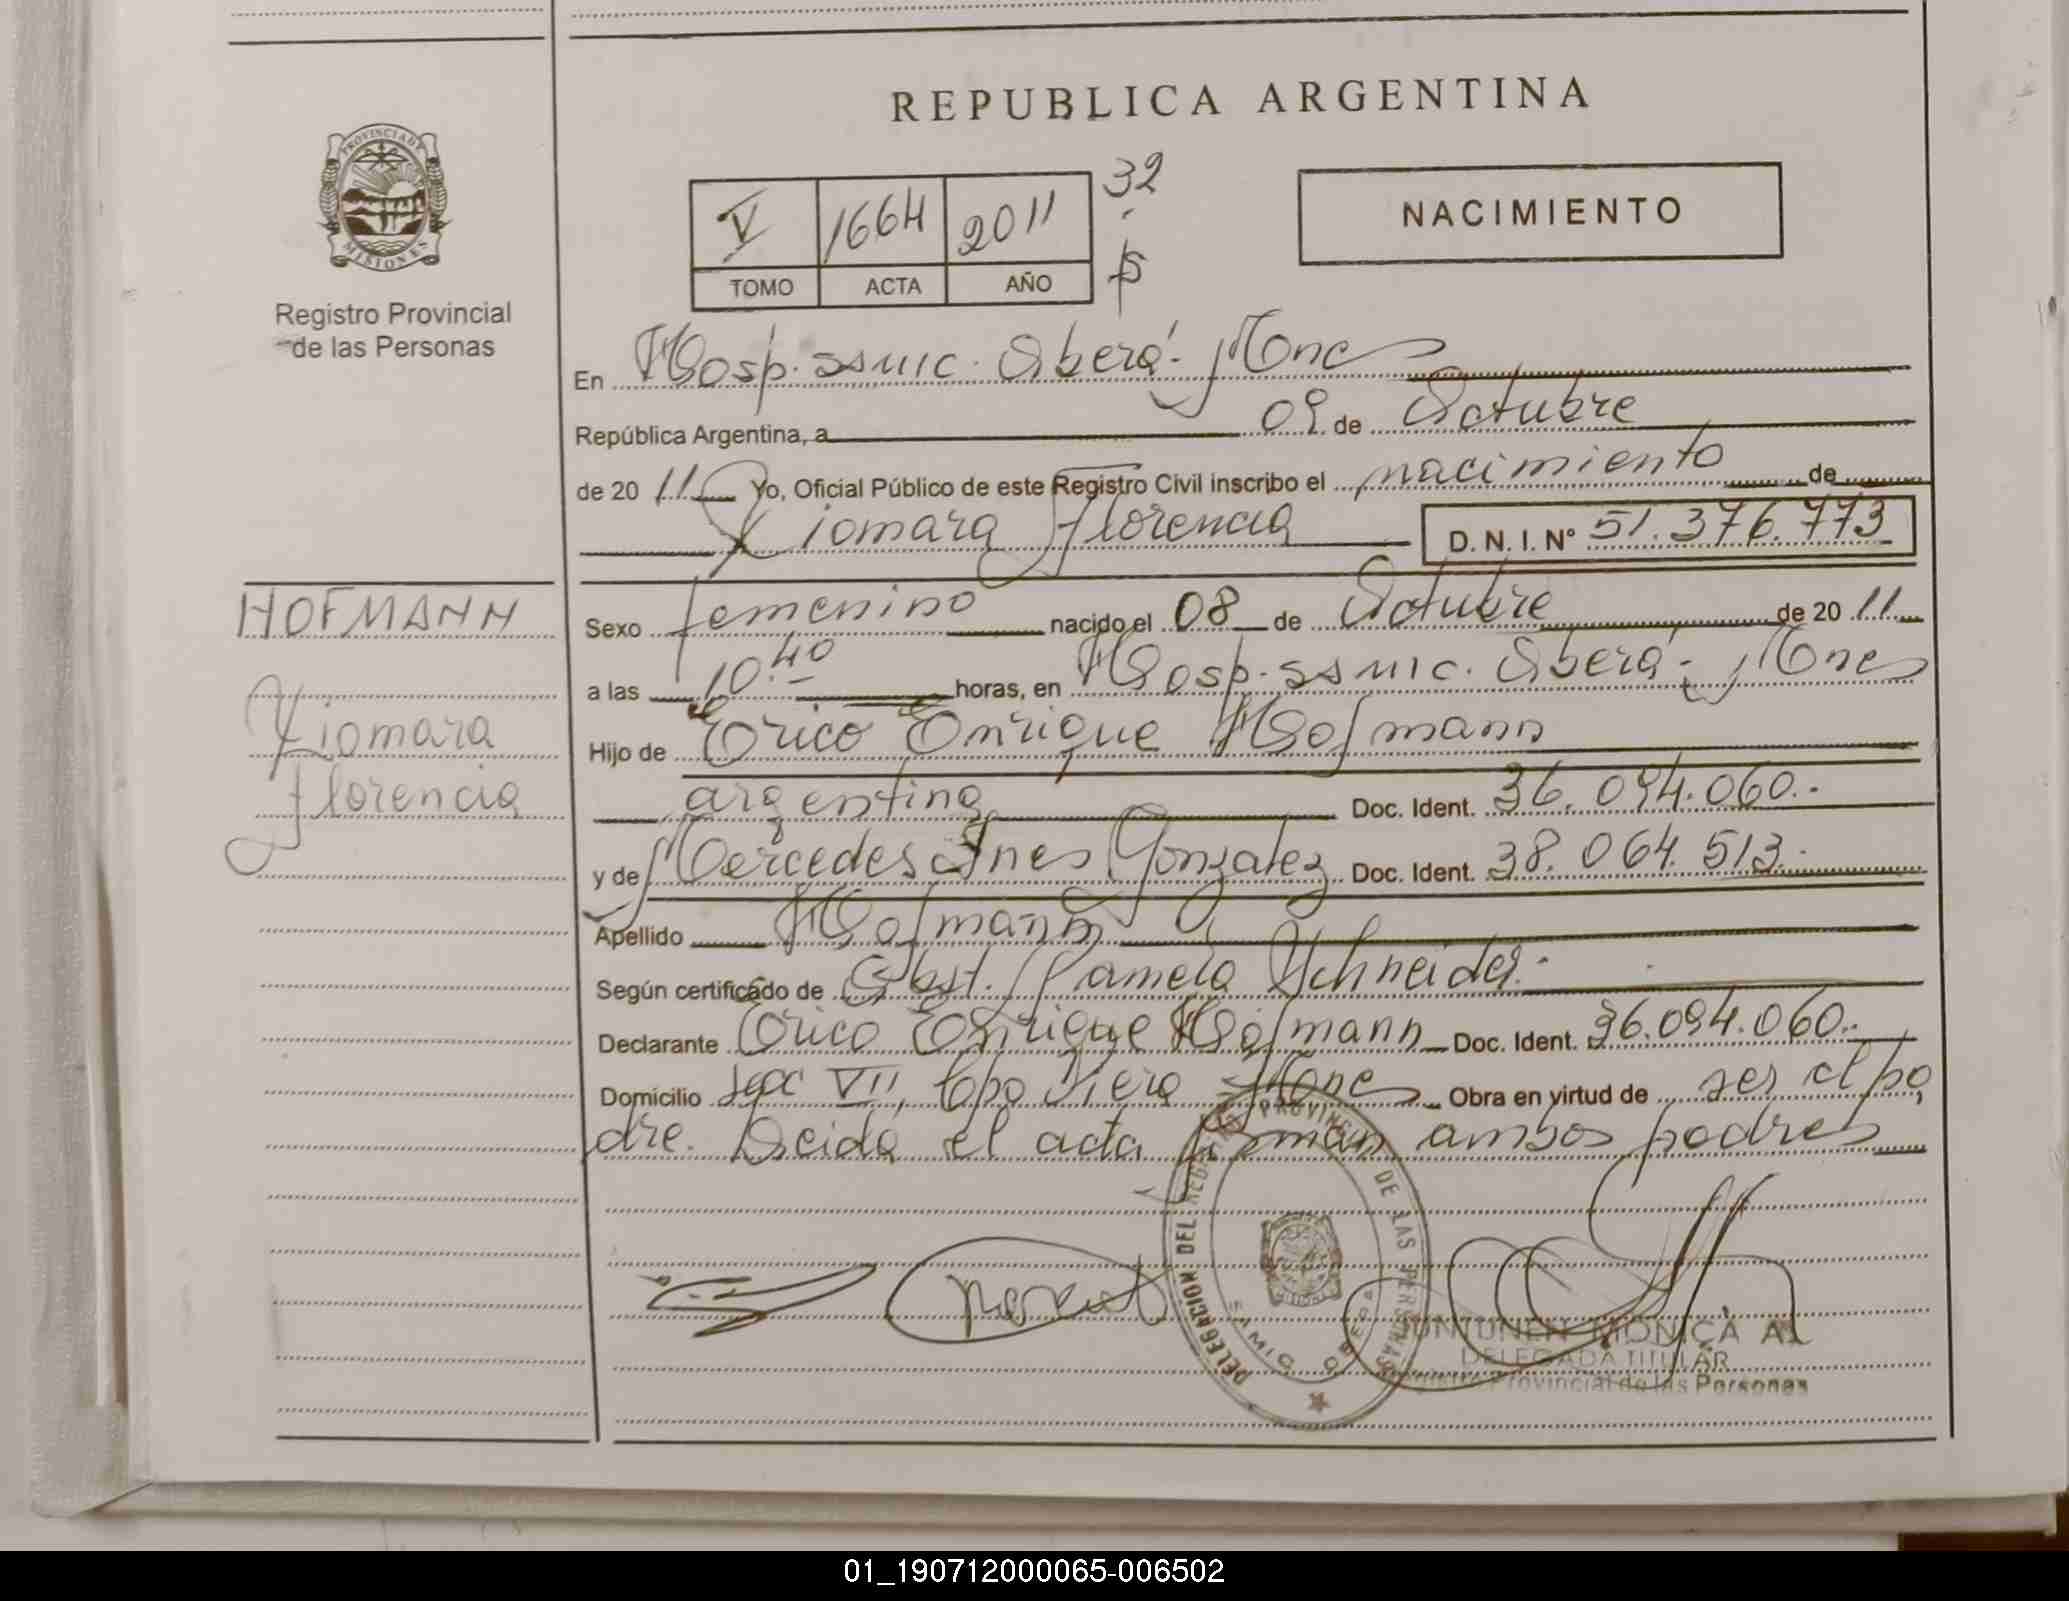 REPUBLICA ARGENTINA
PROVINCIA DE MISIONES
Registro Provincial
de las Personas
V 1664 2011 32
TOMO ACTA AÑO
NACIMIENTO
En Hosp. SSMIC. Oberá- Mnes
República Argentina, a 09 de Octubre
de 20 11 Yo, Oficial Público de este Registro Civil inscribo el nacimiento de
Xiomara Florencia D.N.I. N° 51.376.773
HOFMANN
Xiomara
Florencia
Sexo femenino nacido el 08 de Octubre de 20 11
a las 10.40 horas, en Hosp. SSMIC. Oberá- Mnes
Hijo de Erico Enrique Hofmann
argentina Doc. Ident. 36.094.060.-
y de Mercedes Ines Gonzalez Doc. Ident. 38.064.513.-
Apellido Hofmann
Según certificado de Obst. Pamela Schneider.-
Declarante Erico Enrique Hofmann Doc. Ident. 36.094.060.-
Domicilio Secc VII, Cpo Viera Mnes Obra en virtud de ser el pa
dre. Leida el acta firman ambos padres
DELEGACION DEL REGISTRO PROVINCIAL DE LAS PERSONAS
SAMIC OBERA
MONICA A.
DELEGADA TITULAR
Registro Provincial de las Personas
01_190712000065-006502